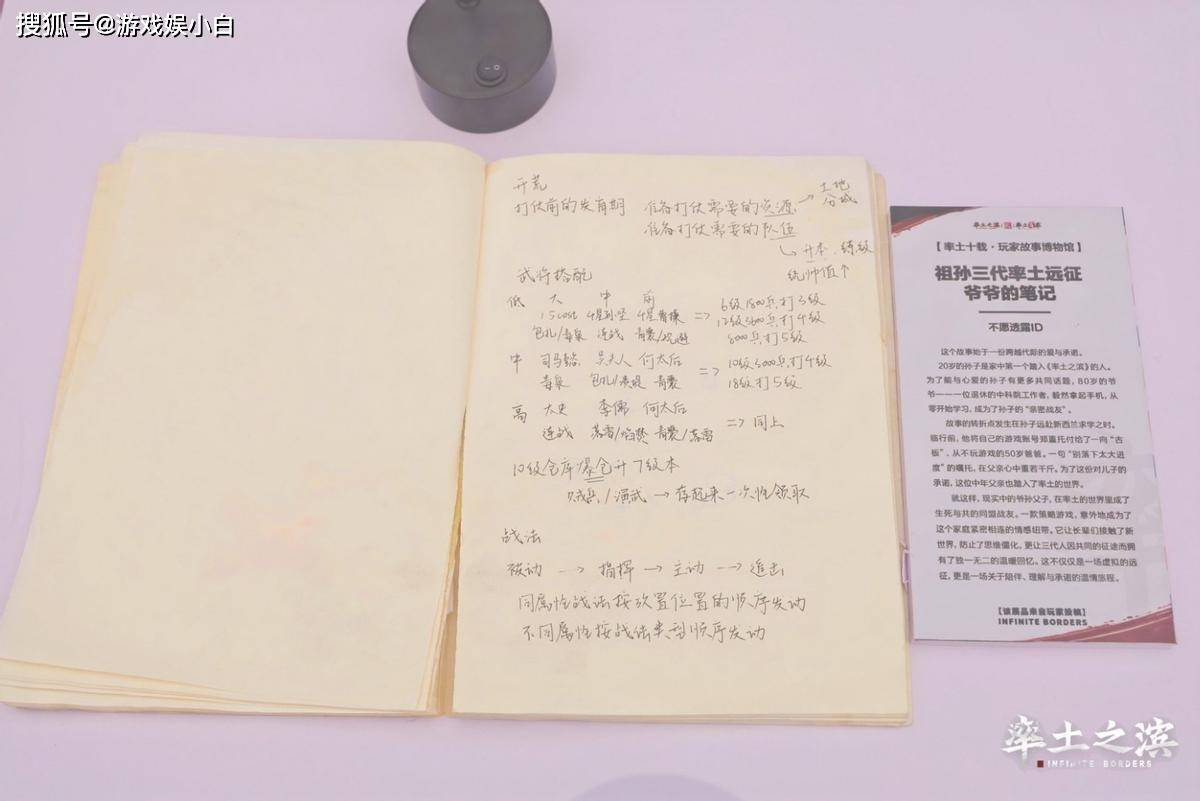 搜狐号@游戏娱小白
开荒
打仗前的发育期 准备打仗需要的资源 → 土地 分城
准备打仗需要的队伍
↳ 升本、练级
统帅值↑
武将搭配
低 大 中 前
1.5cost 4星孙坚 4星曹操 => 6级1800兵打3级
12级3600兵打4级
包扎/毒泉 连战 青囊/规避 8000兵打5级
中 司马懿 吴夫人 何太后 => 10级5000兵打4级
毒泉 包扎/ 青囊 18级打5级
高 太史 李儒 何太后 => 同上
连战 落雷/焰焚 青囊/落雷
10级仓库爆仓升7级本
贼兵/演武 → 存起来一次性领取
战法
被动 → 指挥 → 主动 → 追击
同属性战法按放置位置的顺序发动
不同属性按战法类型顺序发动
率土之滨
【率土十载·玩家故事博物馆】
祖孙三代率土远征
爷爷的笔记
不愿透露ID
这个故事始于一份跨越代际的爱与承诺。
20岁的孙子是家中第一个踏入《率土之滨》的人。
为了能与心爱的孙子有更多共同话题,80岁的爷
爷———一位退休的中科院工作者,毅然拿起手机,从
零开始学习,成为了孙子的“亲密战友”。
故事的转折点发生在孙子远赴新西兰求学之时。
临行前,他将自己的游戏账号郑重托付给了一向“古
板”、从不玩游戏的50岁爸爸。一句“别落下太大进
度”的嘱托,在父亲心中重若千斤。为了这份对儿子的
承诺,这位中年父亲也踏入了率土的世界。
就这样,现实中的爷孙父子,在率土的世界里成了
生死与共的同盟战友。一款策略游戏,意外地成为了
这个家庭紧密相连的情感纽带。它让长辈们接触了新
世界,防止了思维僵化,更让三代人因共同的征途而拥
有了独一无二的温暖回忆。这不仅仅是一场虚拟的远
征,更是一场关于陪伴、理解与承诺的温情旅程。
【该展品来自玩家投稿】
INFINITE BORDERS
率土之滨
INFINITE BORDERS